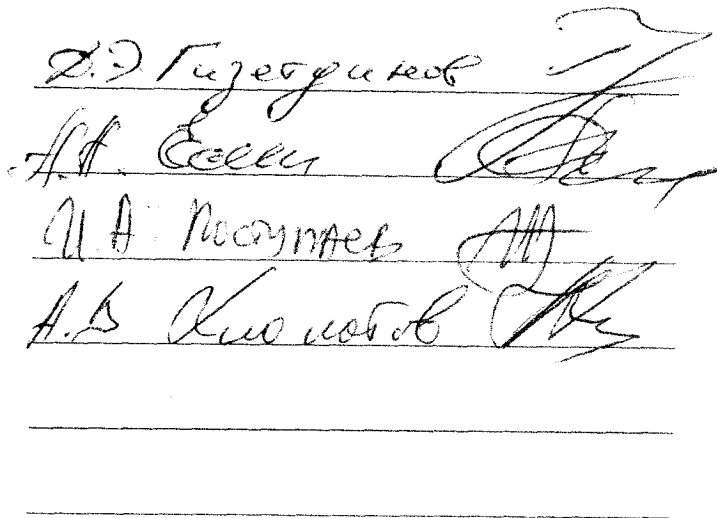 Д.Э. Гизетдинов
А.А. Есин
И.А Поступаев
А.В Хлопотов